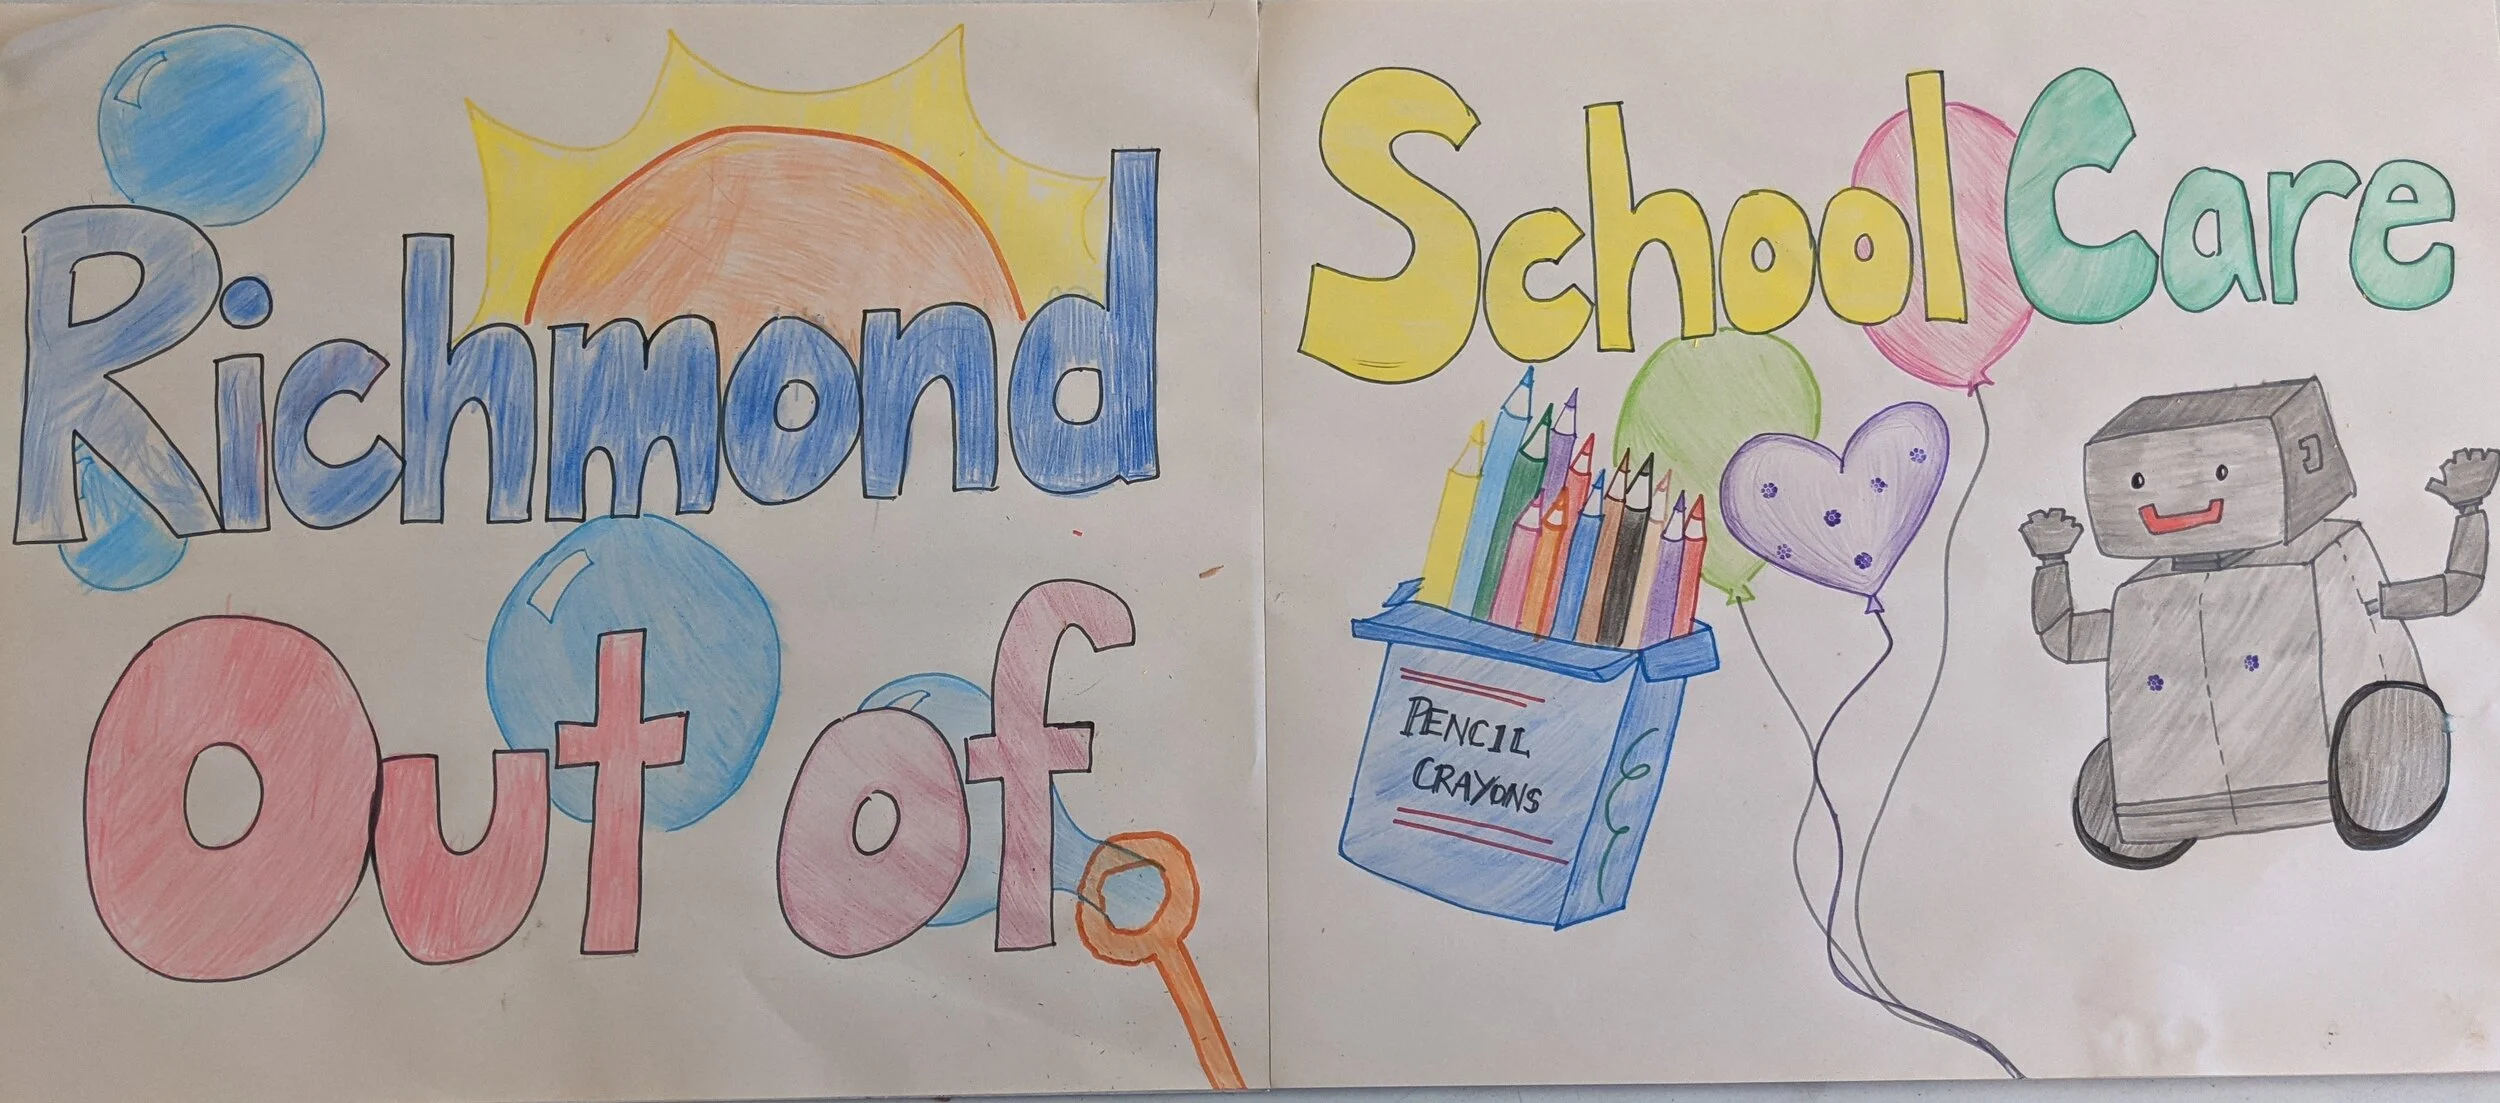 Richmond
Out of
School Care
PENCIL
CRAYONS